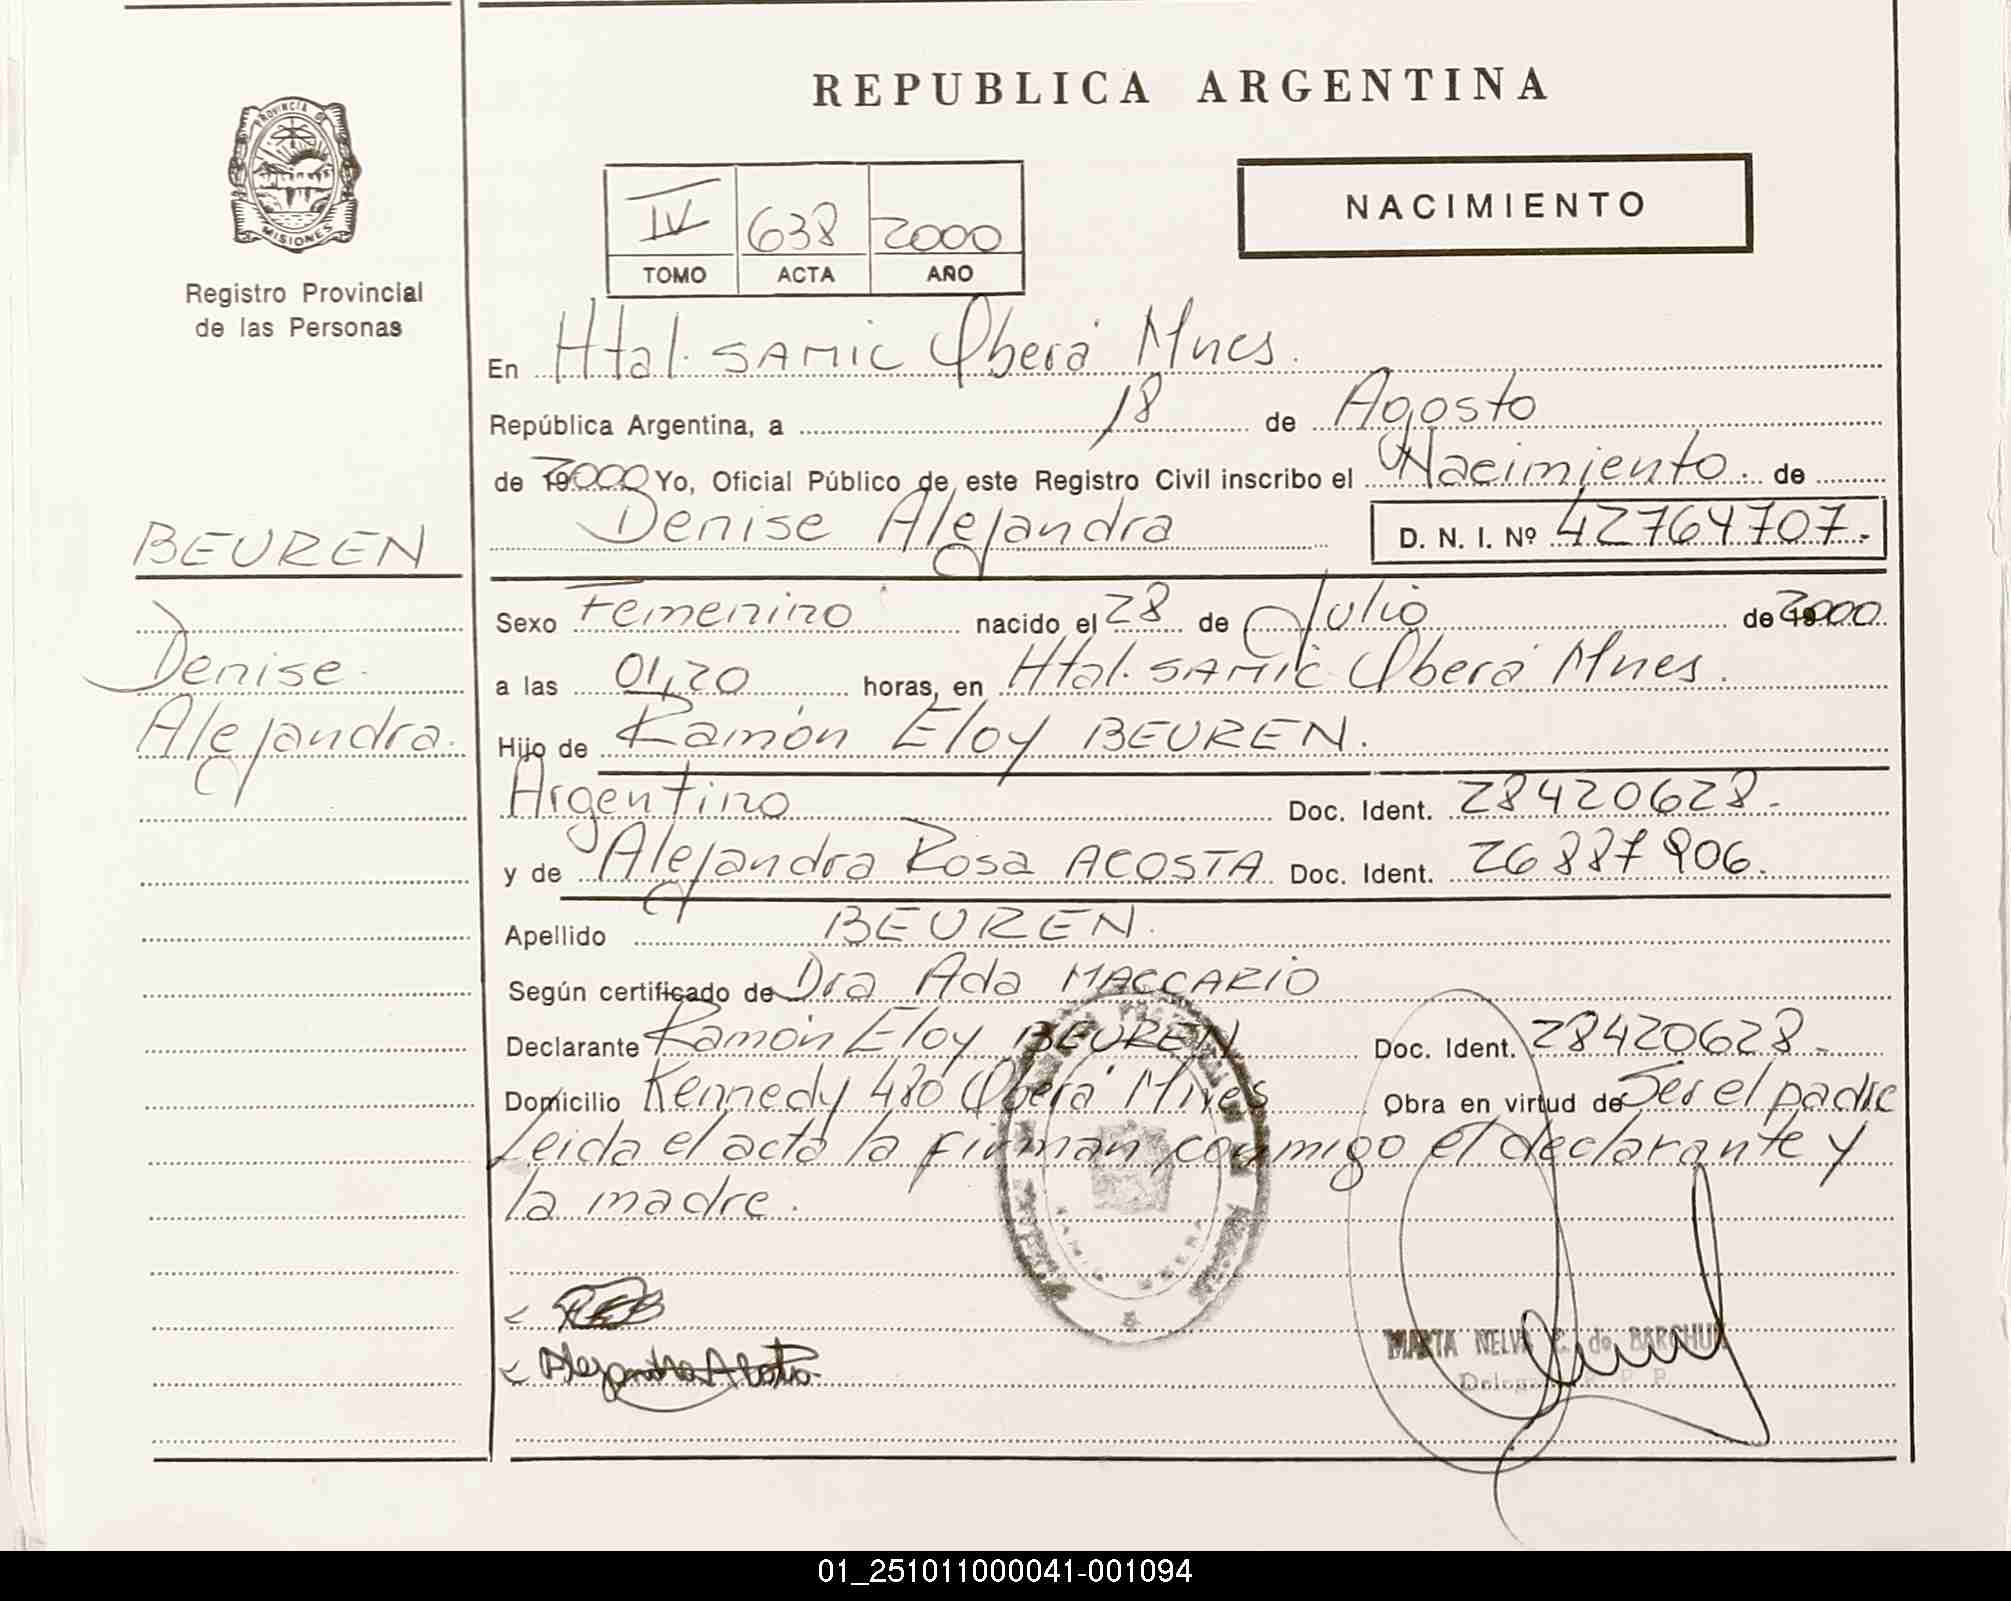 REPUBLICA ARGENTINA
PROVINCIA DE
MISIONES
Registro Provincial
de las Personas
IV 638 2000
TOMO ACTA AÑO
NACIMIENTO
En Htal. SAMIC Oberá Mnes.
República Argentina, a 18 de Agosto
de 2000 Yo, Oficial Público de este Registro Civil inscribo el Nacimiento. de
Denise Alejandra D. N. I. Nº 42764707.-
BEUREN
Denise.
Alejandra.
Sexo Femenino nacido el 28 de Julio de 2000
a las 01,20 horas, en Htal. SAMIC Oberá Mnes.
Hijo de Ramón Eloy BEUREN.
Argentino Doc. Ident. 28420628.
y de Alejandra Rosa ACOSTA Doc. Ident. 26887906.
Apellido BEUREN.
Según certificado de Dra Ada MACCARIO
Declarante Ramón Eloy BEUREN Doc. Ident. 28420628.-
Domicilio Kennedy 480 Oberá Mnes Obra en virtud de Ser el padre
Leida el acta la firman conmigo el declarante y
la madre.
Alejandra Acosta
MARTA NELVA de BARCHUK
01_251011000041-001094